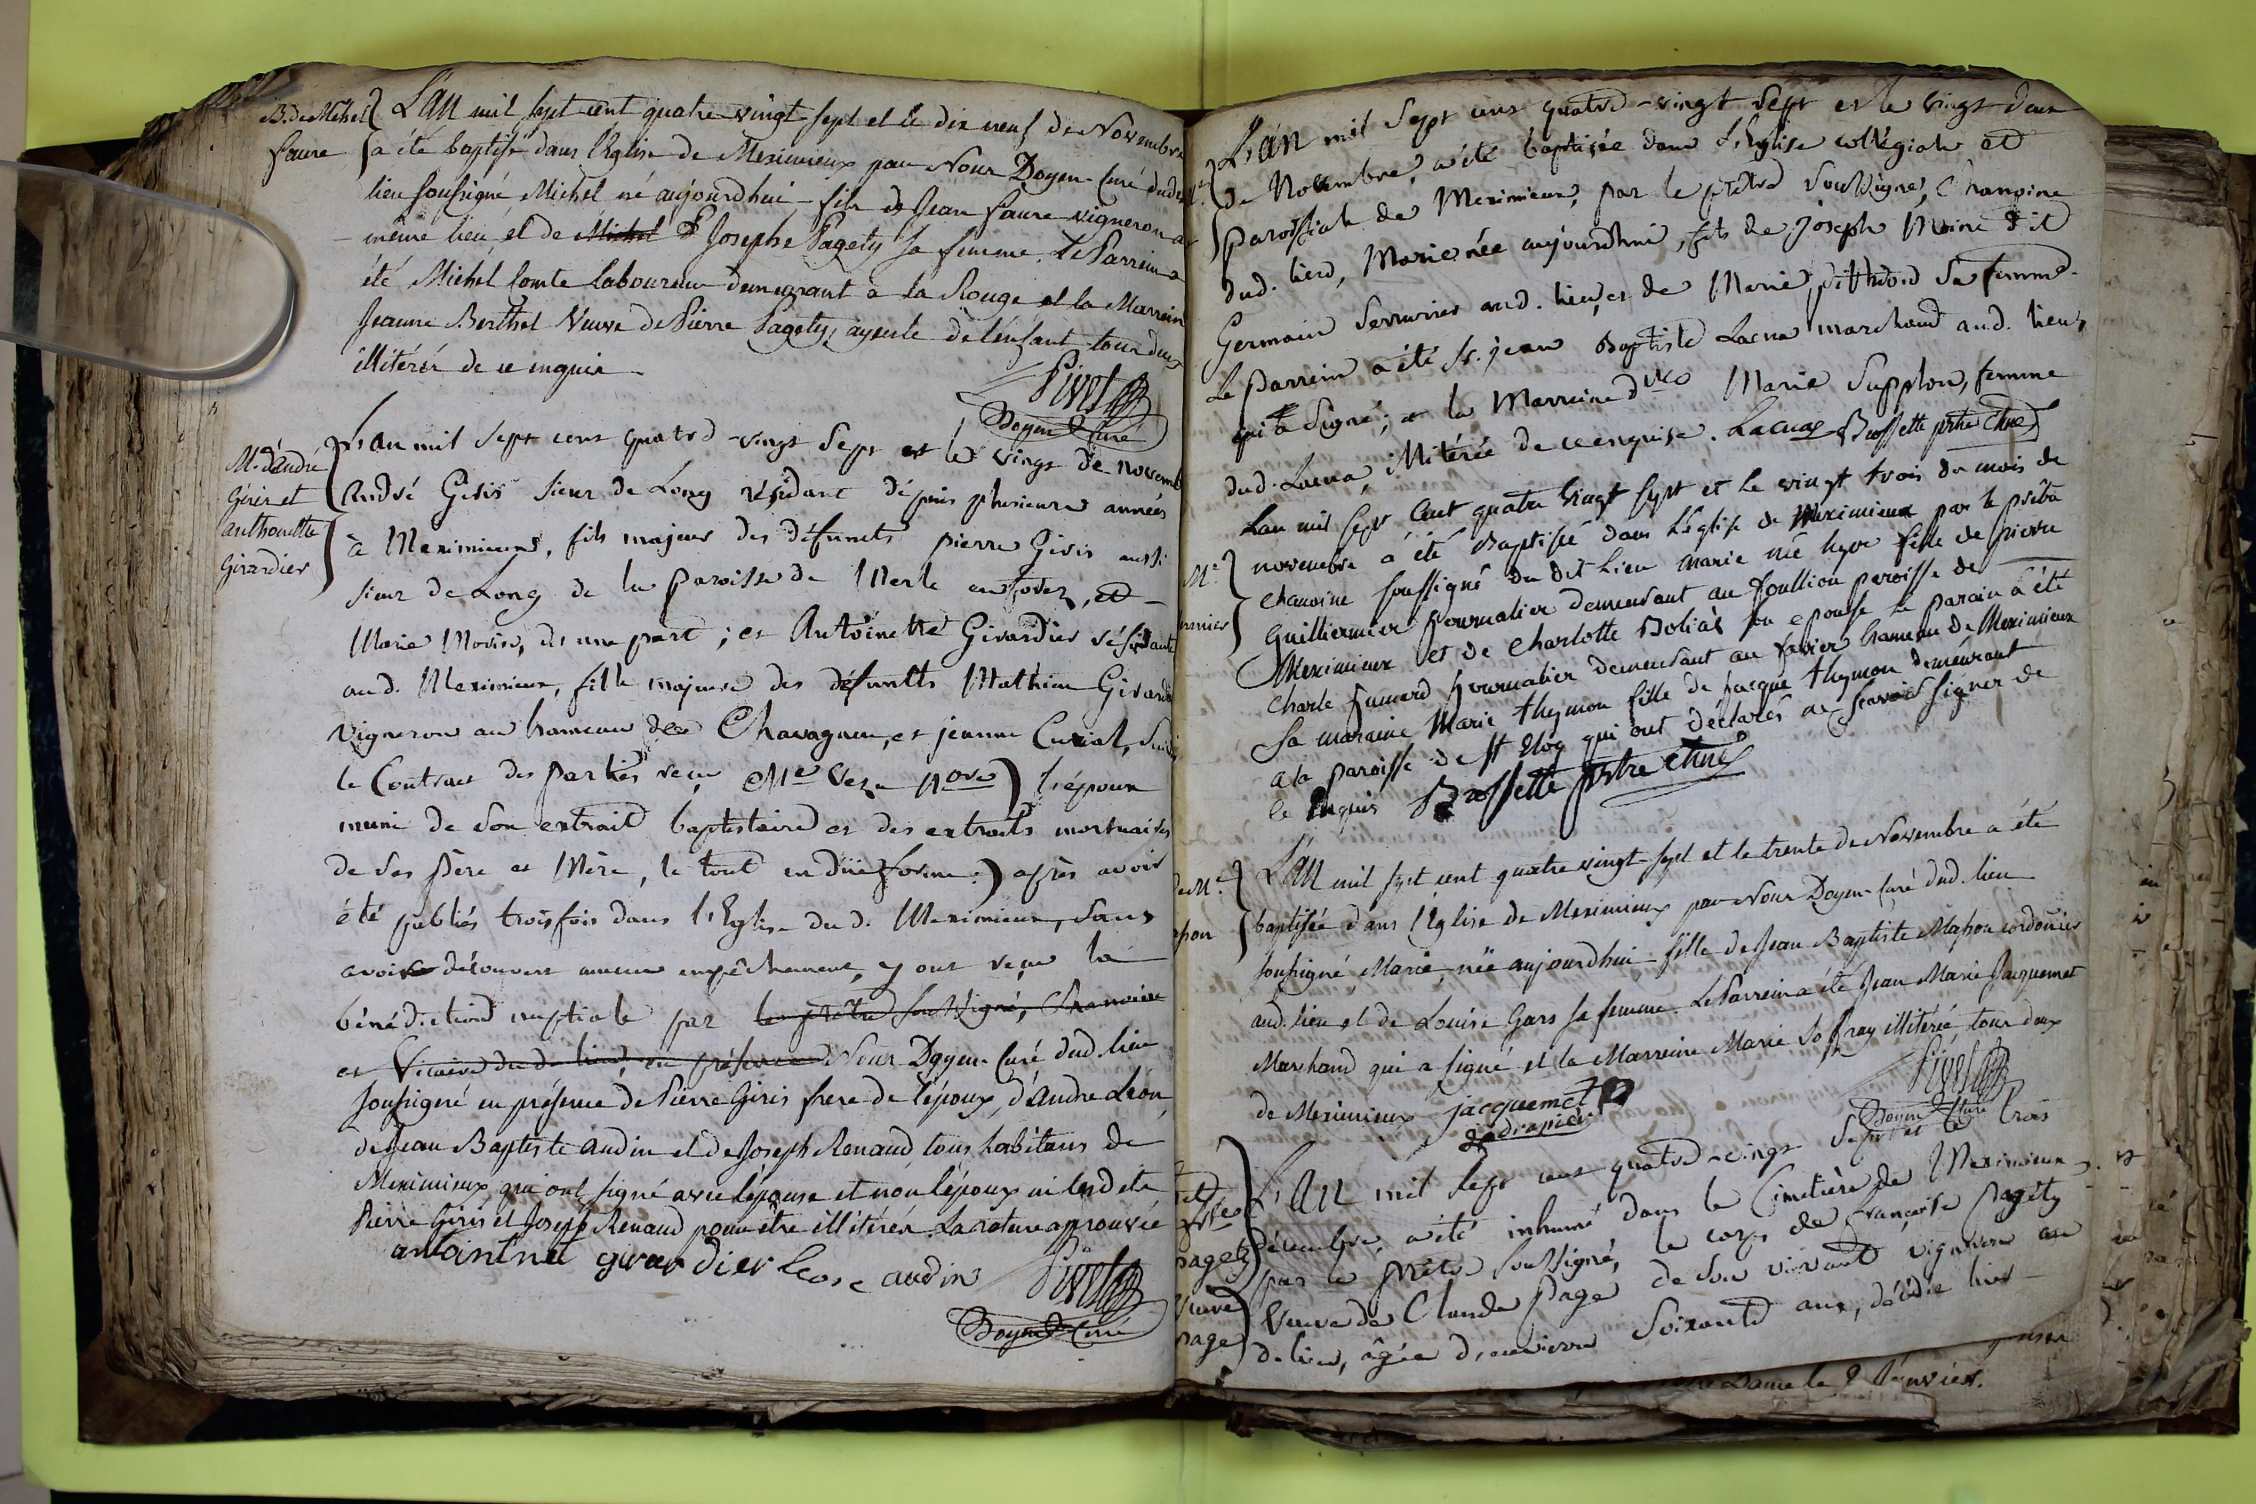 B. de Michel
faure
L'an mil sept cent quatre vingt sept et le dix neuf de Novembre
a été baptisé dans l'Eglise de Meximieux par Nous Doyen Curé dudit
lieu soussigné Michel né aujourdhui fils de Jean faure vigneron au
même lieu et de Michel Josephe Pagety sa femme. Le Parrein a
été Michel Comte laboureur demeurant à la Rouge et la Marreine
Jeanne Berthet Veuve de Pierre Pagety, ayeule de l'enfant tous deux
illitérés de ce enquis
Pivet
Doyen Curé
M. d'andré
Giris et
anthoinette
Girardier
L'an mil sept cent quatre-vingt sept et le vingt de novembre
André Giris sieur de Long résidant dépuis plusieurs années
à Meximieux, fils majeur des défunts pierre Giris aussi
sieur de Long de la paroisse de Merle en forez, et
Marie Morier, de une part ; et Antoinette Girardier résidante
aud. Meximieux, fille majeure des défunts Mathieu Girardier
vigneron au hameau de Chavagneu, et jeanne Curial, suivi
le Contract des parties reçu Me Veze Nore) l'époux
muni de son extrait baptistaire et des extraits mortuaires
de ses père et Mère, le tout en düe forme:) après avoir
été publiés trois fois dans l'Eglise du d. Meximieux, sans
avoir découvert aucun empêchement, y ont reçu la
bénédiction nuptiale par le prêtre soussigné, Chanoine
et Vicaire du d. lieu, en présence Nous Doyen Curé dud. lieu
soussigné en présence de Pierre Giris frere de l'époux, d'Andre Léon,
de Jean Baptiste Audin et de Joseph Renaud, tous habitans de
Meximieux, qui ont signé avec l'épouse et non l'époux ni lesdits
Pierre Giris et Joseph Renaud pour être illitérés. La rature approuvée
antoinne girardier Leon audin Pivet
Doyen Curé
L'an mil sept cent quatre-vingt sept et le vingt-deux
de Novembre, a été baptisée dans L'Eglise collégiale et
paroissiale de Meximieux, par le prêtre soussigné, Chanoine
dud. lieu, Marie née aujourdhui, fils de joseph Moine dit
Germain serrurier aud. lieu, et de Marie sa femme.
Le parrein a été Sr. jean Baptiste Lacua marchand aud. lieu,
qui a signé ; et la Marreine Marie Supplon, femme
dud. Lacua, illitérée de ce enquise. Lacua Brossette prtre Chne
Lan mil sept Cent quatre vingt sept et le vingt trois du mois de
novembre a été Baptisée dans l'église de Meximieux par le prêtre
chanoine soussigné du dit lieu marie née hyer fille de pierre
Guilliermier journalier demeurant au foullion paroisse de
Meximieux et de Charlotte Boliat son epouse le parain a été
Charle fumerd journalier demeurant au favier hameau de Meximieux
sa maraine Marie thymon fille de jacque thymon demeurant
a la paroisse de st Eloy qui ont déclarés ne scavoir signer de
ce enquis Brossette prtre chne
de Me
L'an mil sept cent quatre vingt-sept et le trente de Novembre a été
baptisée dans l'Eglise de Meximieux par Nous Doyen Curé dud. lieu
soussigné Marie, née aujourdhui fille de Jean Baptiste Masson cordonier
aud. lieu et de Louise Gars sa femme. Le Parrein a été Jean Marie Jacquemet
Marchand qui a signé et la Marreine Marie Joffray illitérée tous deux
de Meximieux jacquemet Pivet
drapier Doyen Curé
pagety
veuve
page
L'an mil sept cent quatre-vingt sept et le trois
décembre, a été inhumé dans le Cimetière de Meximieux
par le prêtre soussigné, le corps de françoise pagéty
Veuve de Claude page de son vivant vigneron au
d. lieu, âgée d'environ soixante ans, décédée hier
Dame le 2 Janvier.